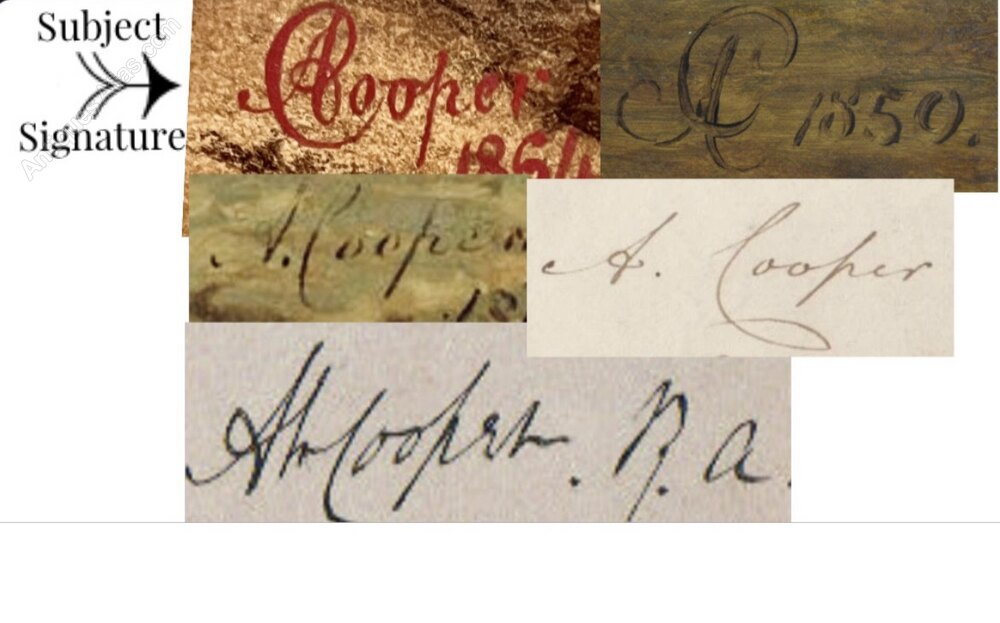 Subject
Signature
ACooper
185
AC 1859.
A. Cooper
18
A. Cooper
Ab Cooper. R. A.